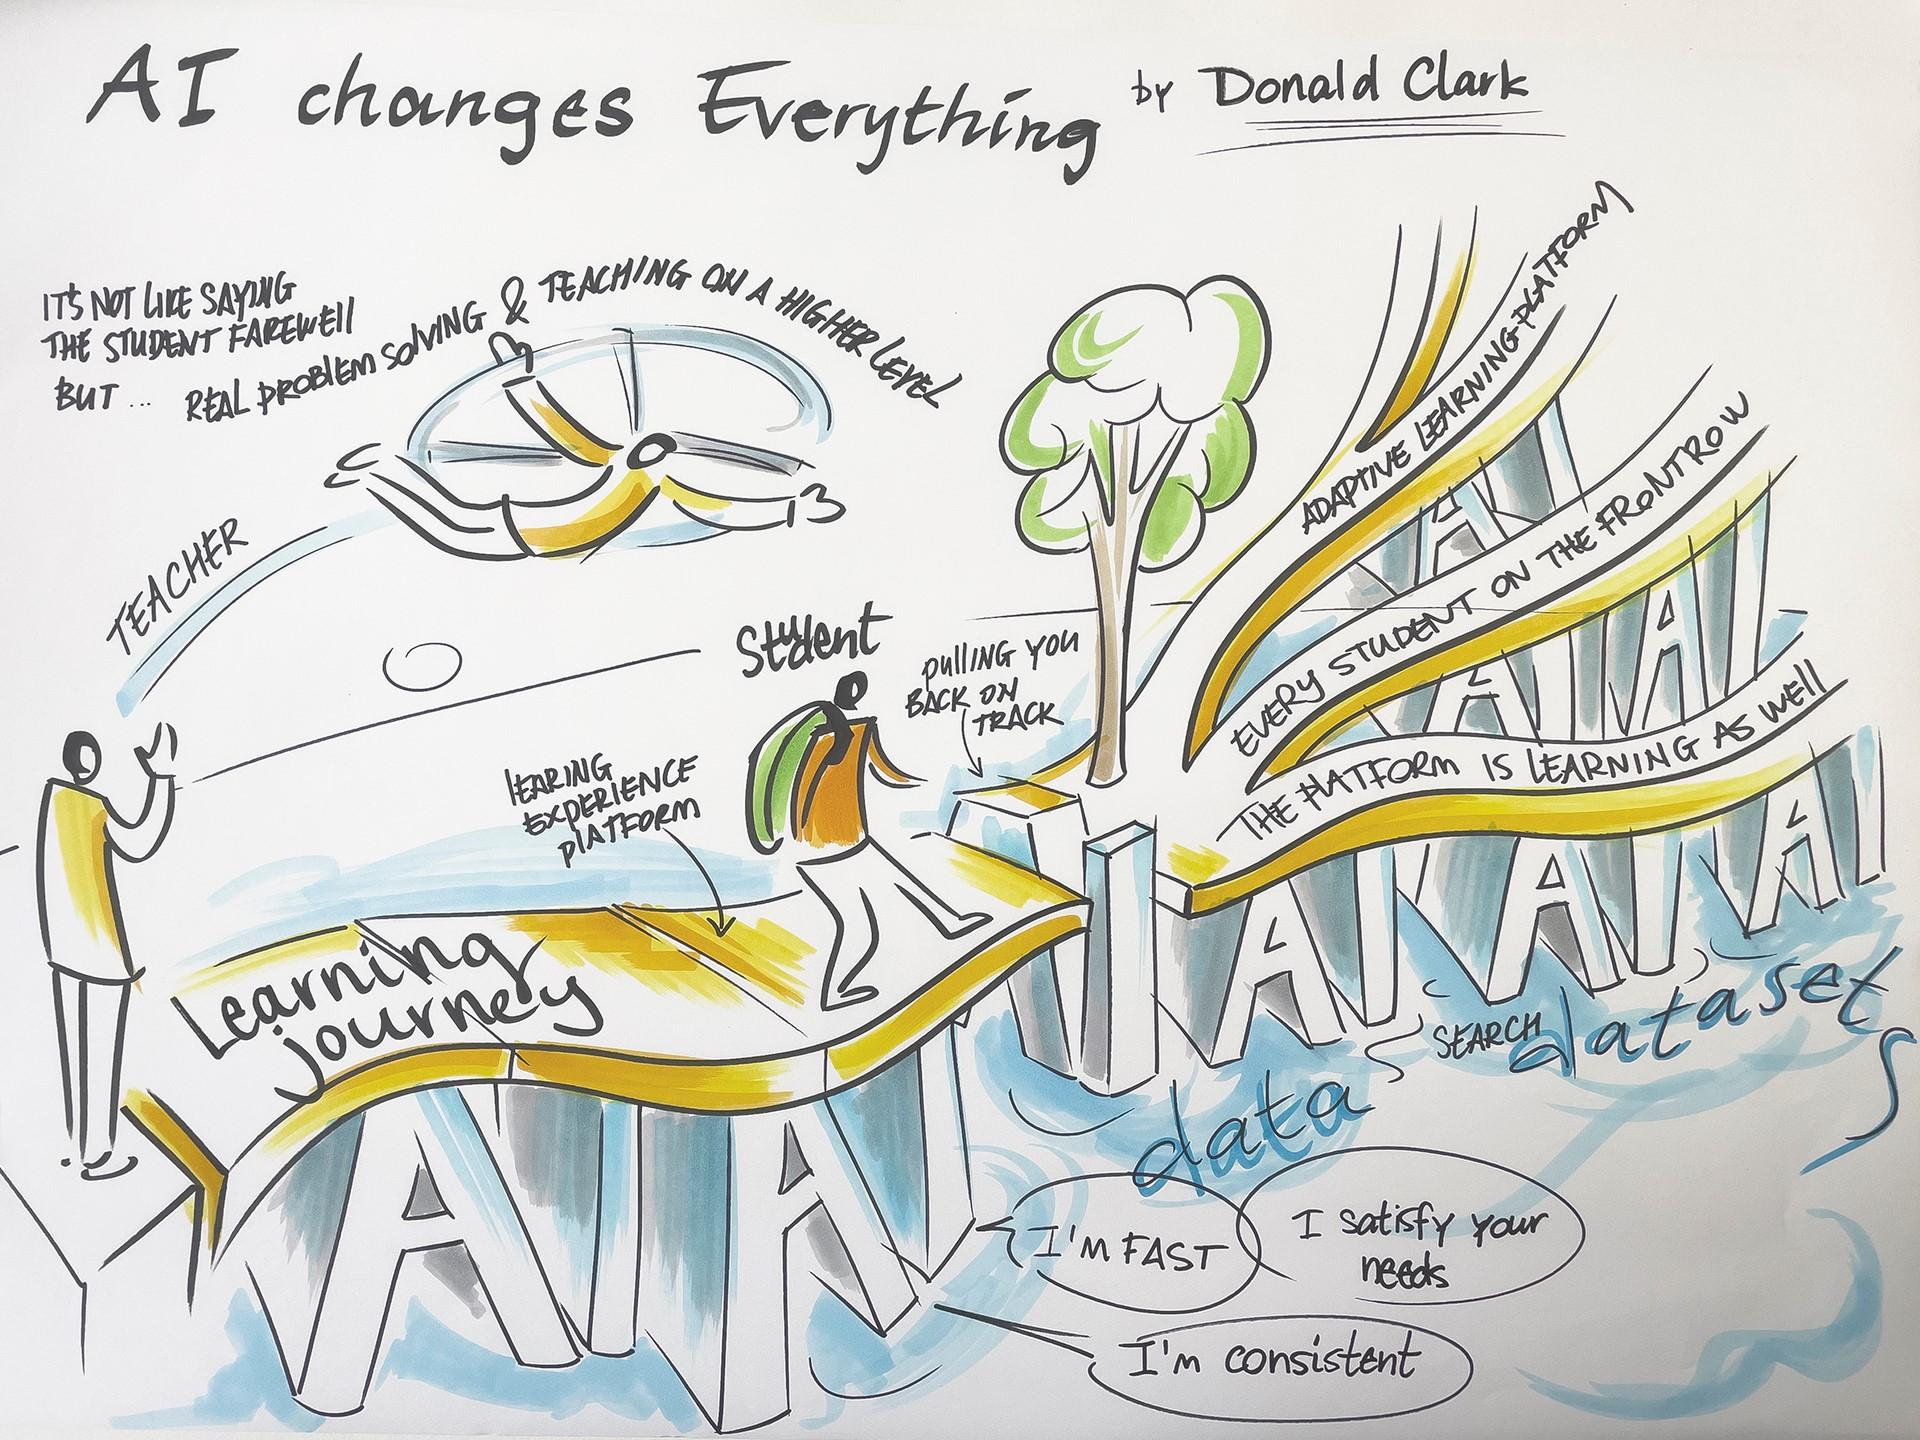 AI changes Everything by Donald Clark
IT'S NOT LIKE SAYING
THE STUDENT FAREWELL
BUT ...
REAL PROBLEM SOLVING & TEACHING ON A HIGHER LEVEL
TEACHER
Student
PULLING YOU
BACK ON
TRACK
LEARING
EXPERIENCE
PLATFORM
Learning
journey
ADAPTIVE LEARNING-PLATFORM
EVERY STUDENT ON THE FRONTROW
THE PLATFORM IS LEARNING AS WELL
AI
AI
AI
AI
AI
AI
AI
AI
AI
SEARCH
datasets
data
I'M FAST
I satisfy your
needs
I'm consistent